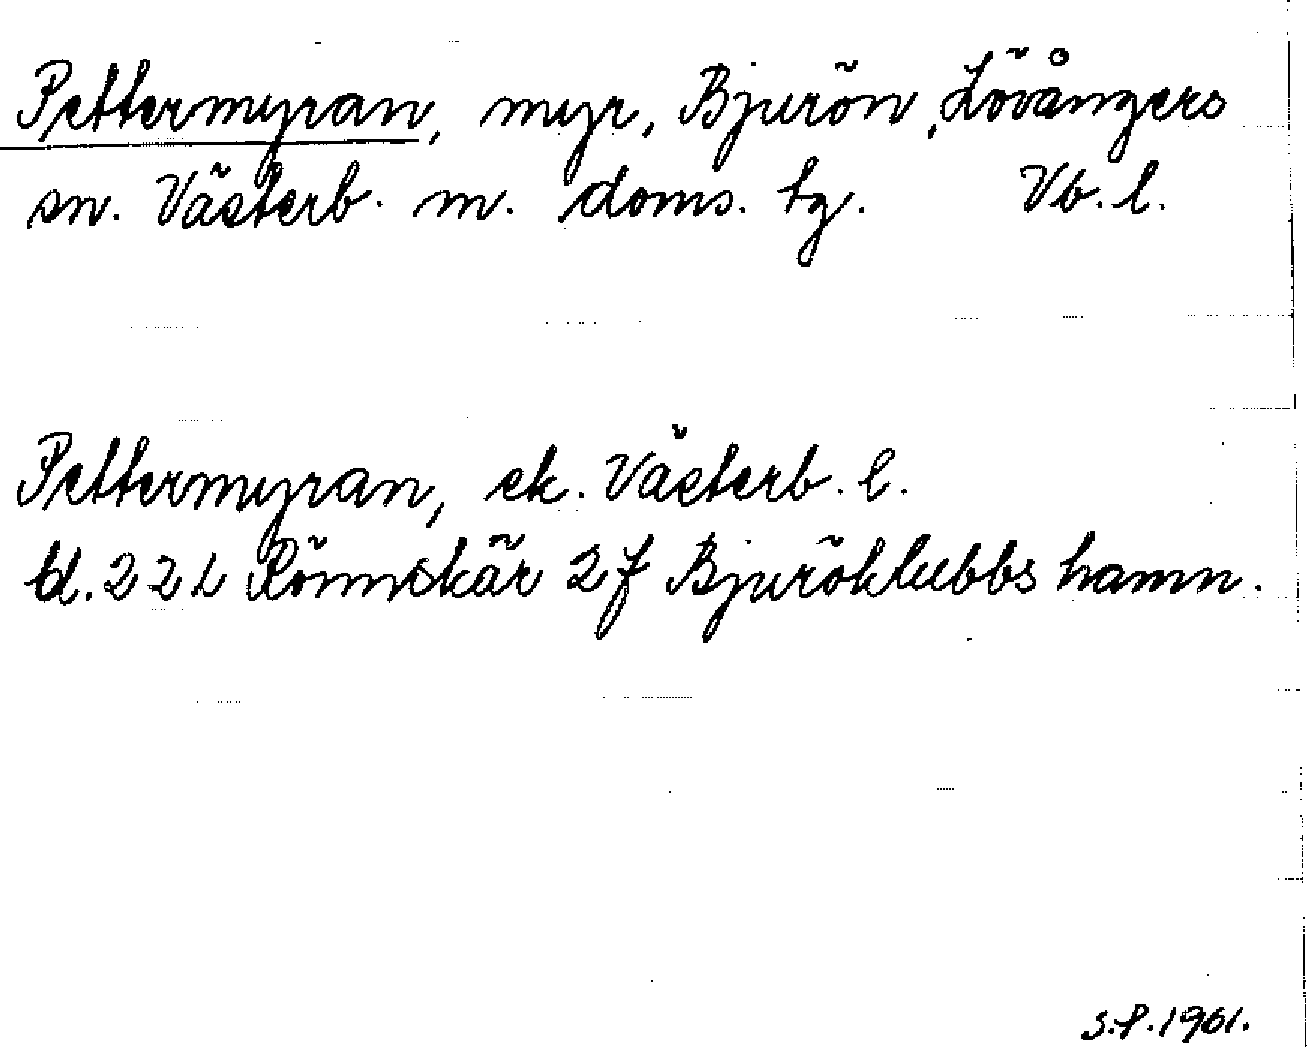 Pettermyran, myr, Bjurön, Lövångers
sn. Västerb. m. doms. tg. Vb. l.
Pettermyran, ek. Västerb. l.
bl. 22 L Rönnskär 2f Bjuröklubbs hamn.
S.P. 1961.